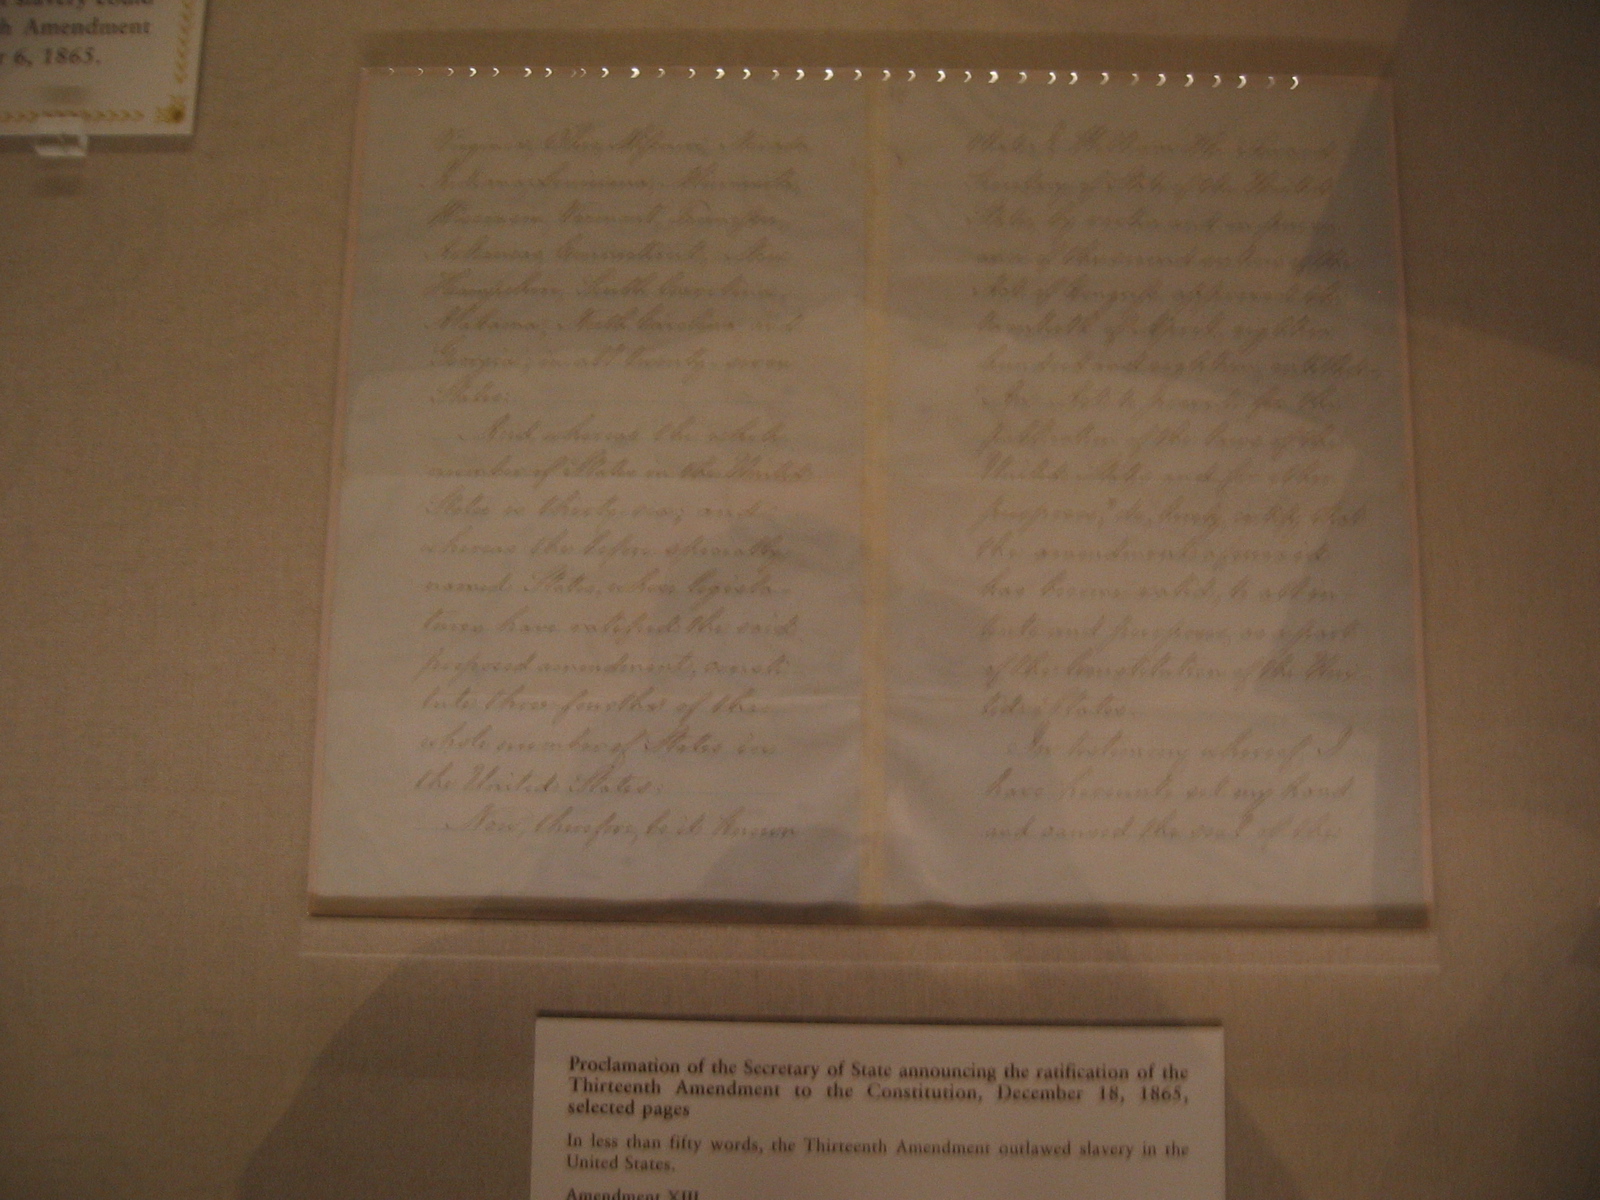 slavery could
h Amendment
r 6, 1865.
Virginia, Ohio, Missouri, Nevada
Indiana, Louisiana, Minnesota,
Wisconsin, Vermont, Tennessee,
Arkansas, Connecticut, New
Hampshire, South Carolina,
Alabama, North Carolina and
Georgia; in all twenty-seven
States:
And whereas the whole
number of States in the United
States is thirty-six; and
whereas the before specially
named States, whose legisla-
tures have ratified the said
proposed amendment, consti
tute three fourths of the
whole number of States in
the United States:
Now, therefore, be it known
that I William H. Seward
Secretary of State of the United
States, by virtue and in
of the second section of the
Act of Congress, approved the
twentieth of April, eighteen
hundred and eighteen, entitled
"An Act to provide for the
publication of the laws of the
United States and for other
purposes," do, hereby, certify, that
the amendment aforesaid
has become valid, to all in-
tents and purposes, as a part
of the Constitution of the Uni-
ted States.
In testimony whereof I
have hereunto set my hand
and caused the seal of the
Proclamation of the Secretary of State announcing the ratification of the
Thirteenth Amendment to the Constitution, December 18, 1865,
selected pages
In less than fifty words, the Thirteenth Amendment outlawed slavery in the
United States.
Amendment XIII